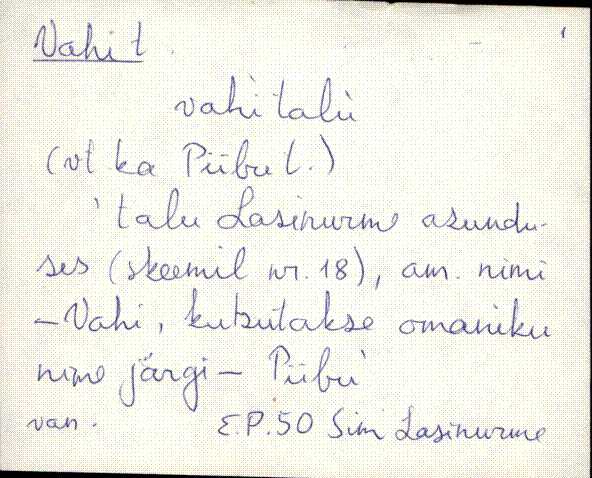 Vahi t.
vahì talù
(vt ka Piibu t.)
'talu Lasinurme asundu-
ses (skeemil nr. 18), am. nimi
– Vahi, kutsutakse omaniku
nime järgi – Piibù
van. E.P. 50 Sim Lasinurme